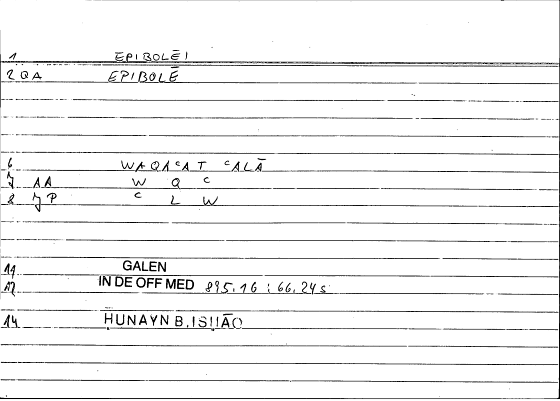 1 EPIBOLĒI
2 QA EPIBOLĒ
6 WAQAᶜAT ᶜALĀ
7 AA W Q ᶜ
8 JP ᶜ L W
11 GALEN
12 IN DE OFF MED 895.16 : 66.24s
14 ḤUNAYN B.ISḤĀQ